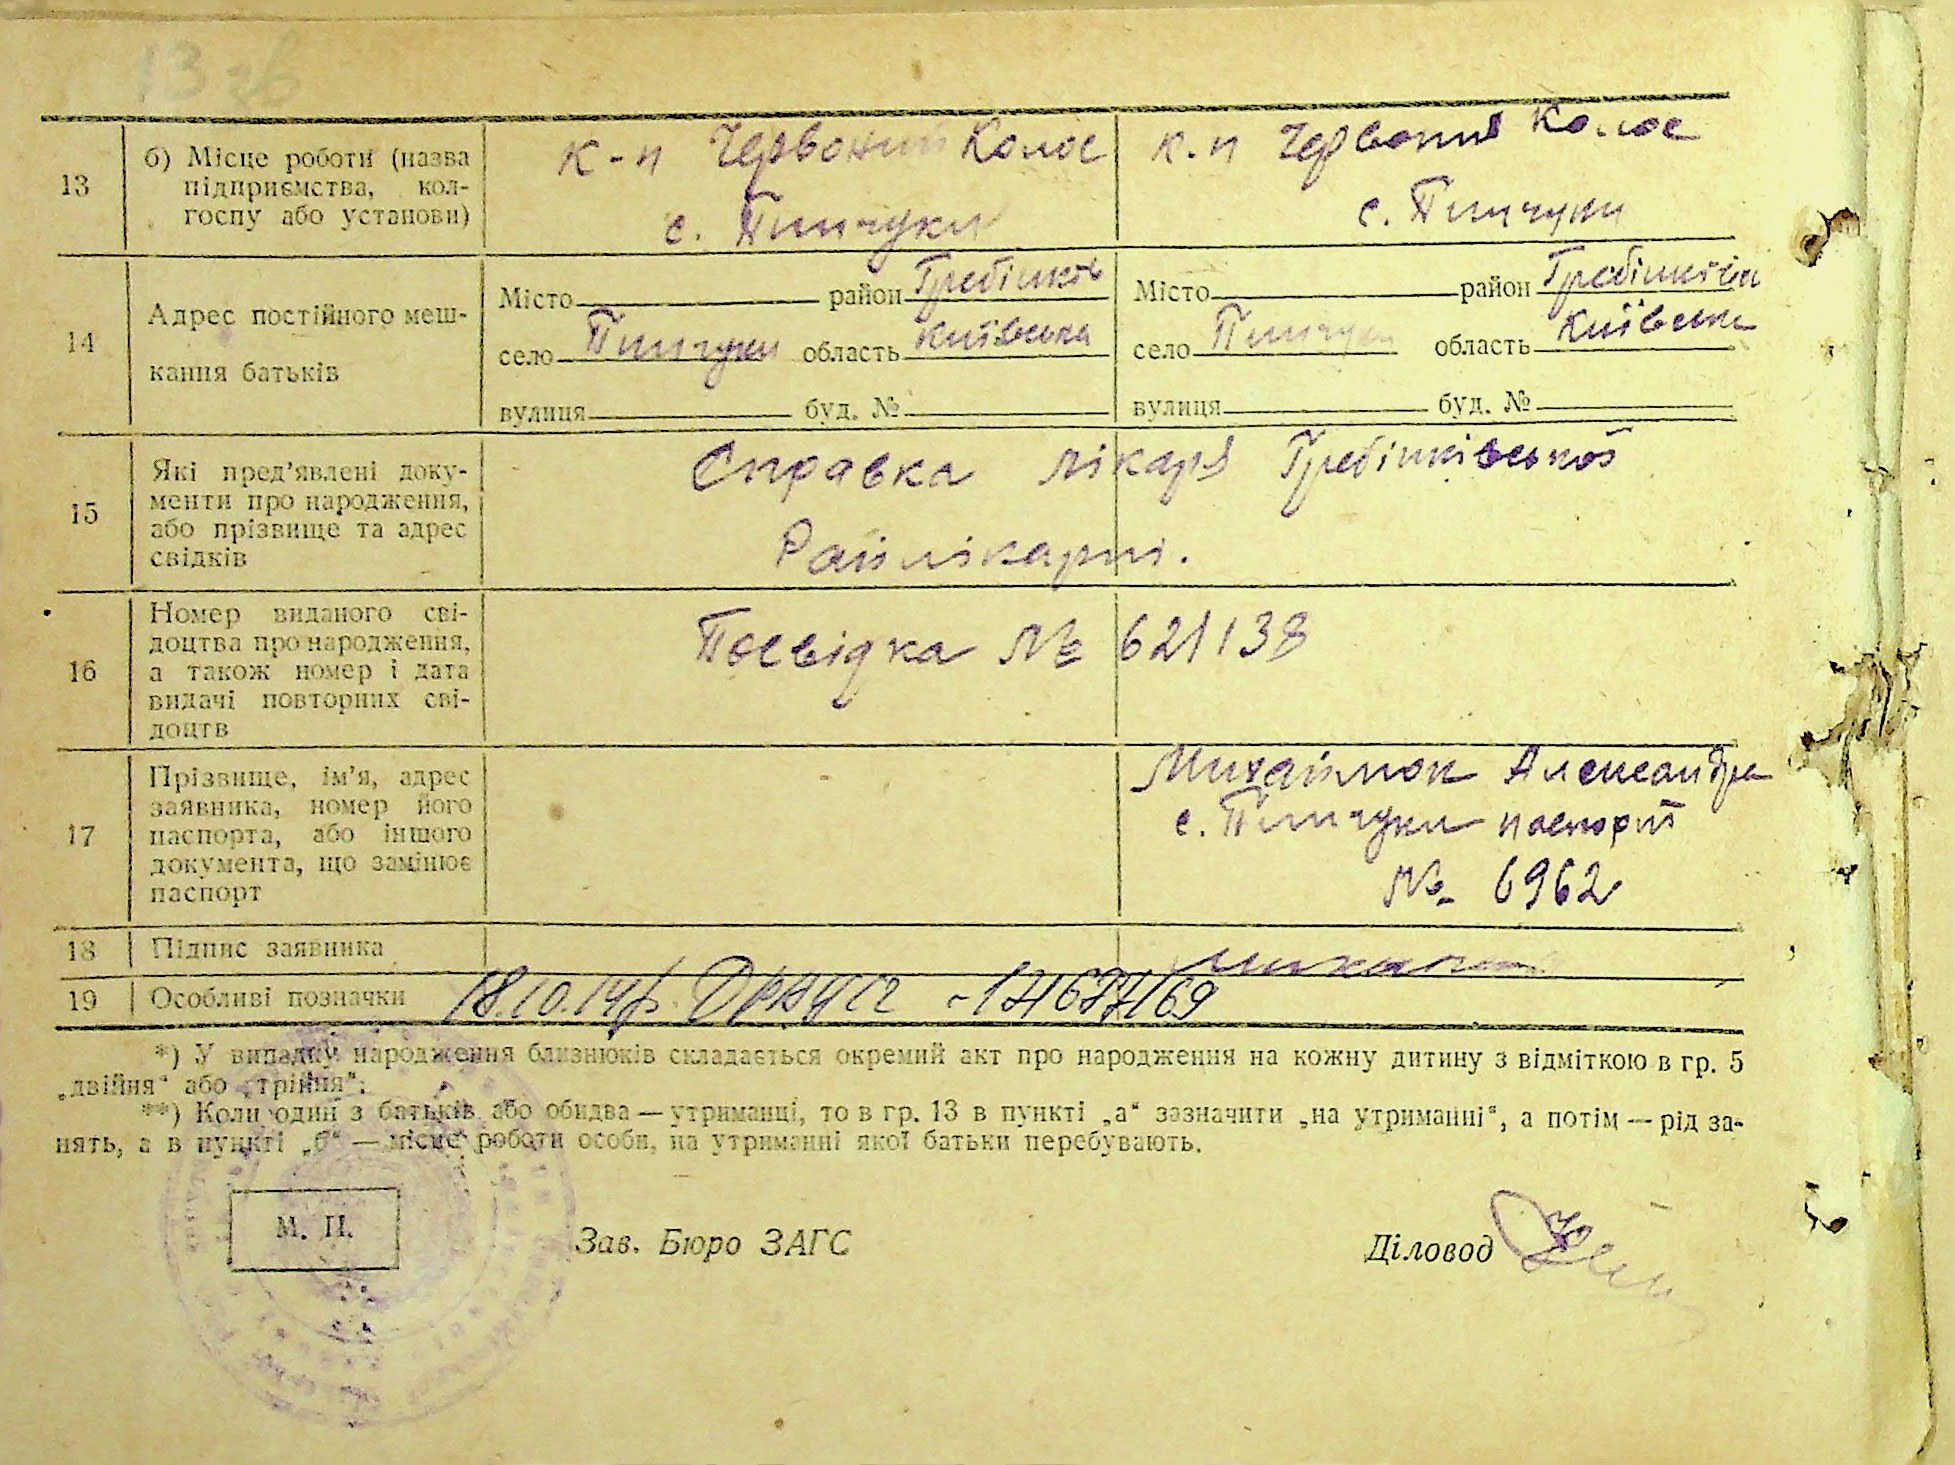 13 зв
13
б) Місце роботи (назва
підприємства, кол-
госпу або установи)
к-п Червоний Колос
с. Пінчуки
к-п Червоний Колос
с. Пінчуки
14
Адрес постійного меш-
кання батьків
Місто район Гребінків
село Пінчуки область Київська
вулиця буд. №
Місто район Гребінківськ
село Пінчуки область Київська
вулиця буд. №
15
Які пред’явлені доку-
менти про народження,
або прізвище та адрес
свідків
Справка лікаря Гребінківської
Райлікарні.
16
Номер виданого сві-
доцтва про народження,
а також номер і дата
видачі повторних сві-
доцтв
Посвідка № 621138
17
Прізвище, ім’я, адрес
заявника, номер його
паспорта, або іншого
документа, що замінює
паспорт
Михайлюк Александра
с. Пінчуки паспорт
№ 6962
18
Підпис заявника
19
Особливі позначки
*) У випадку народження близнюків складається окремий акт про народження на кожну дитину з відміткою в гр. 5
„двійня“ або „трійня“.
**) Коли один з батьків або обидва — утриманці, то в гр. 13 в пункті „а“ зазначити „на утриманні“, а потім — рід за-
нять, а в пункті „б“ — місце роботи особи, на утриманні якої батьки перебувають.
М. П.
Зав. Бюро ЗАГС
Діловод